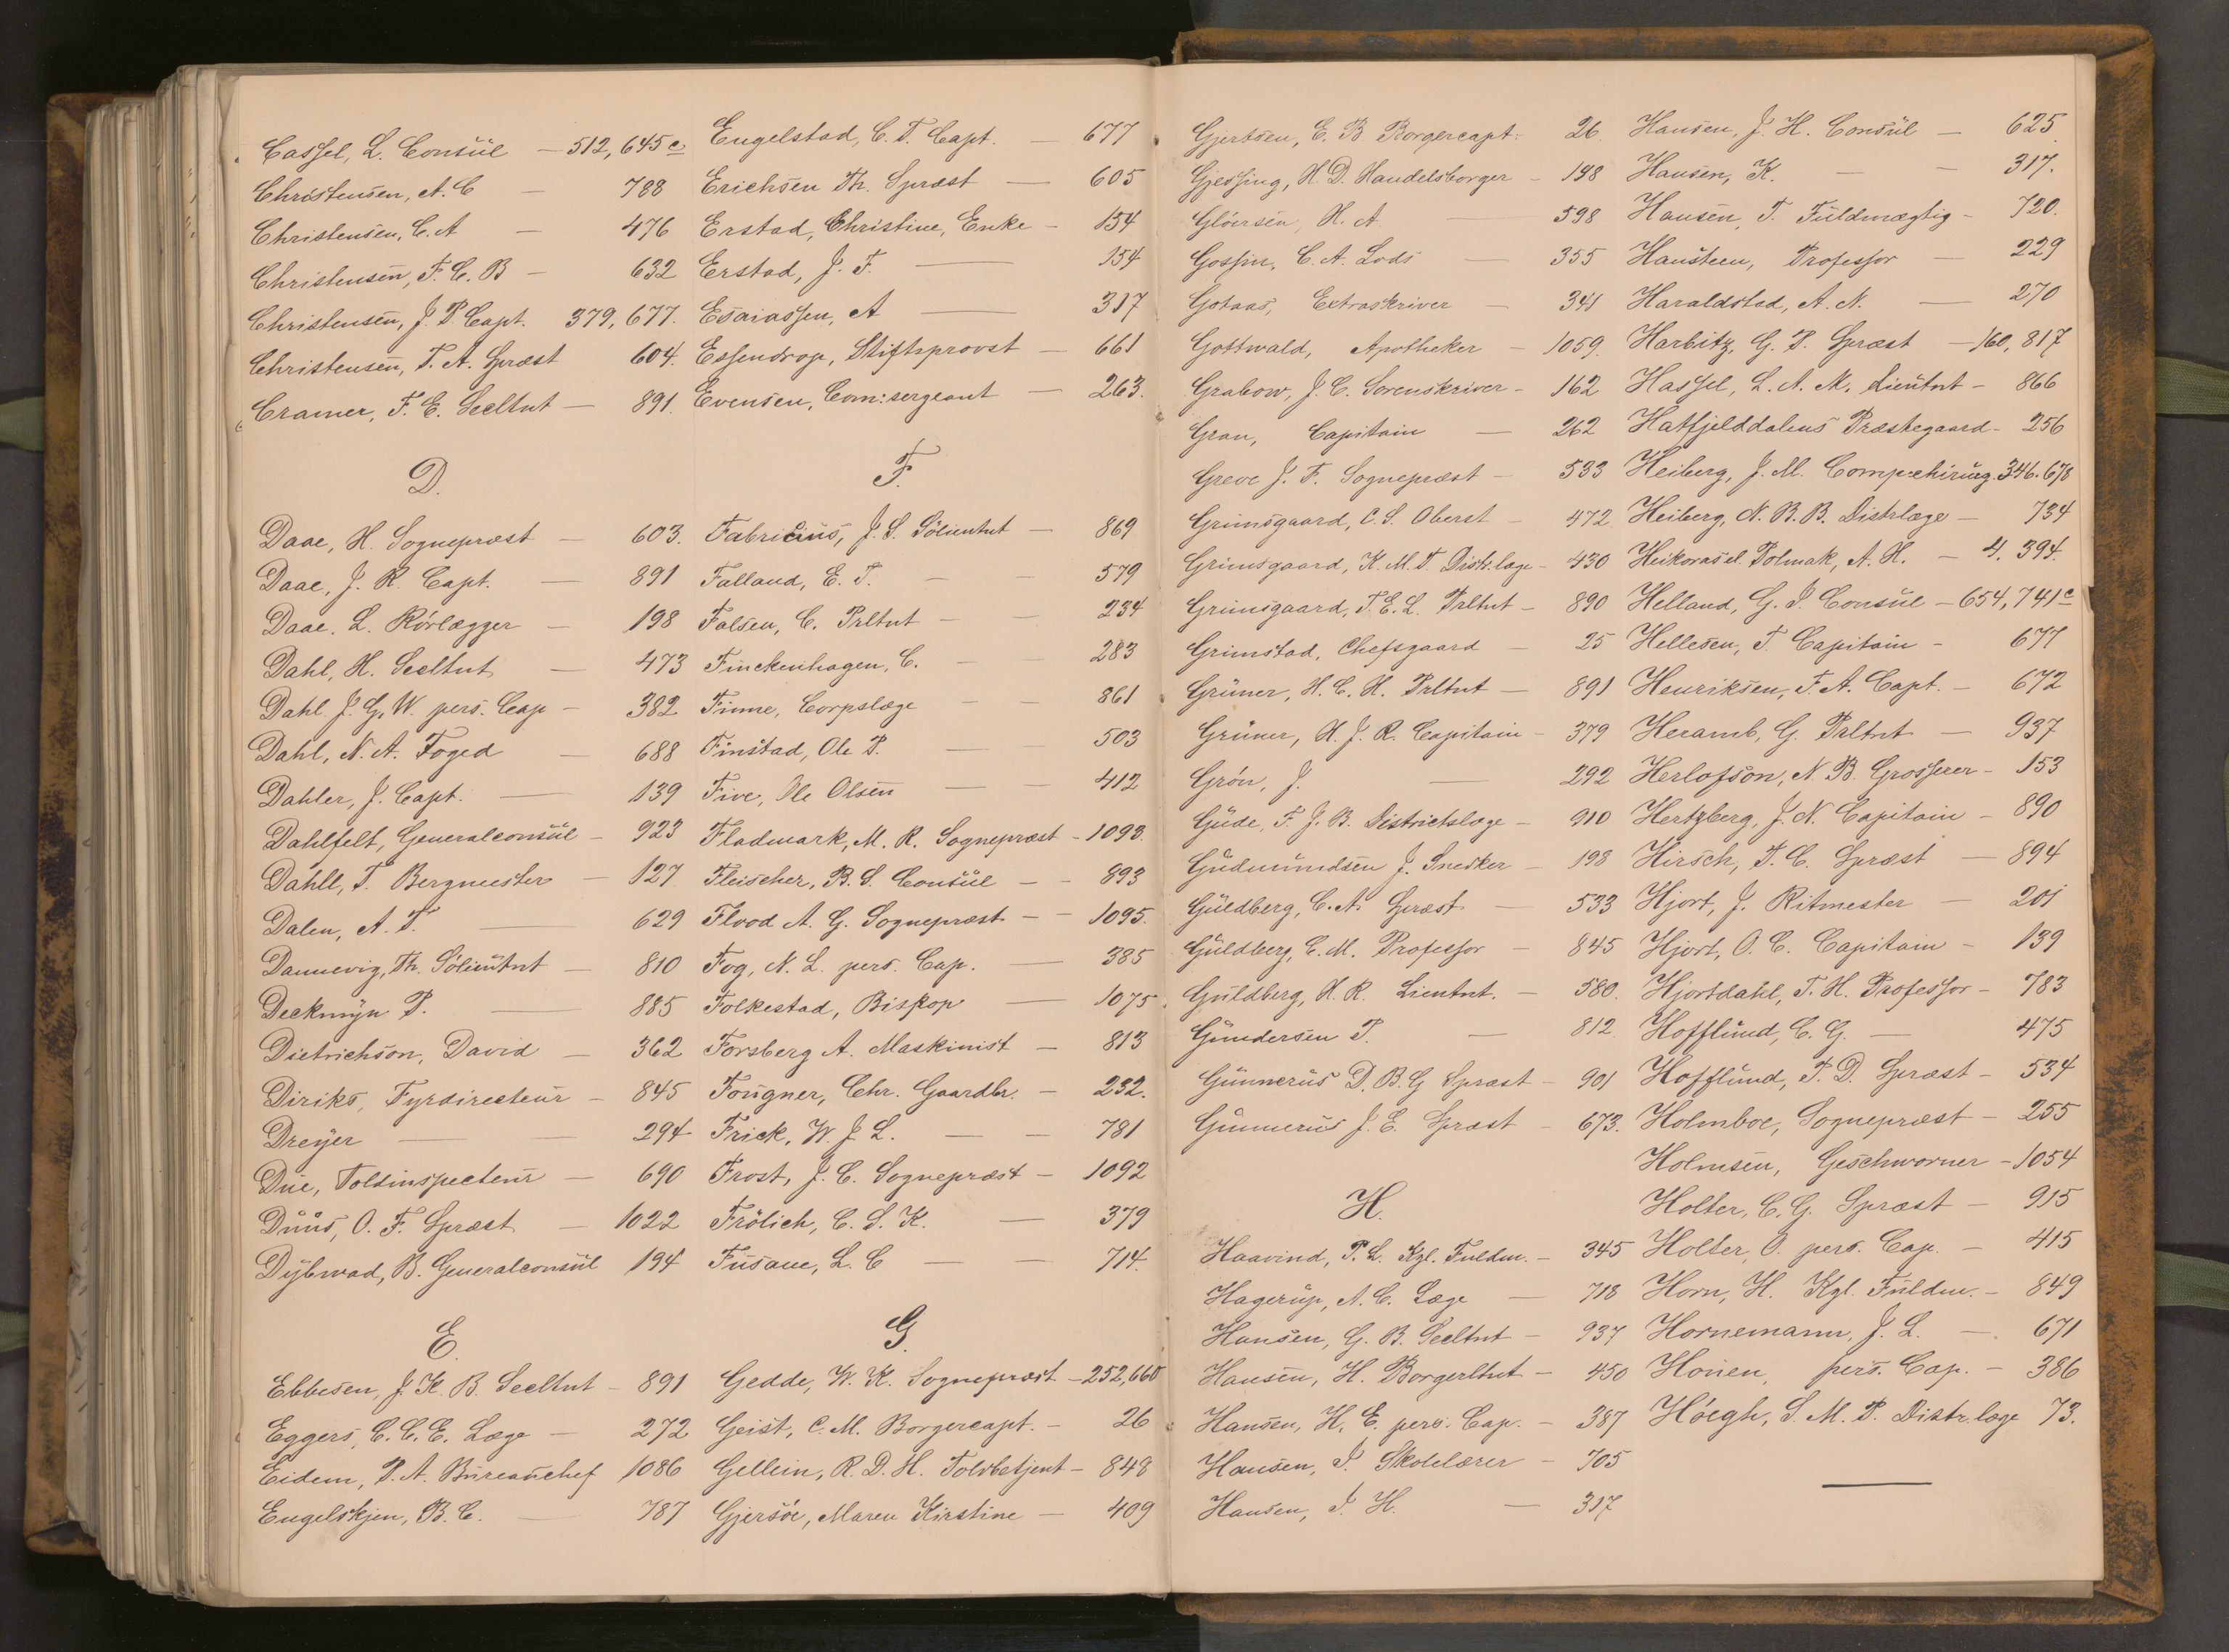 Cassel, L. Consül — 512, 645c
Christensen, A. C — 788
Christensen, C. A — 476
Christensen, F. C. B — 632
Christensen, J. P. Capt. 379, 677.
Christensen, T. A. Spræst 604.
Cramer, F. E. Secltnt — 891.
D.
Daae, H. Sognepræst — 603.
Daae, J. R. Capt. — 891
Daae, L. Rörlægger — 198
Dahl, H. Secltnt — 473
Dahl J. G. W. pers. Cap — 382
Dahl, N. A. Foged — 688
Dahler, J. Capt. — 139
Dahlfelt, Generalconsül — 923
Dahll, T. Bergmester — 127
Dalen, A. T. — 629
Dannevig, Th. Sölieütnt — 810
Deckmÿn P. — 885
Dietrichson, David — 362
Diriks, Fyrdirecteür — 845
Dreÿer — 294
Düe, Toldinspecteür — 690
Düüs, O. F. Spræst — 1022
Dÿbwad, B. Generalconsül 194
E.
Ebbesen, J. K. B. Secltnt — 891
Eggers, C. C. E. Læge — 272
Eidem, P. A. Büreaüchef 1086
Engelskjen, B. C. — 787
Engelstad, C. T. Capt. — 677
Erichsen Th. Spræst — 605
Erstad, Christine, Enke — 154
Erstad, J. F. — 154
Esaiassen, A — 317
Essendrop, Stiftsprovst — 661
Evensen, Com: sergeant — 263.
F.
Fabricius, J. S. Sölieutnt — 869
Falland, E. T. — 579
Falsen, C. Prltnt — 234
Finckenhagen, C. — 283
Finne, Corpslæge — 861
Finstad, Ole P. — 503
Five, Ole Olsen — 412
Fladmark, M. R. Sognepræst — 1093.
Fleischer, B. S. Consül — 893
Flood A. G. Sognepræst — 1095.
Fog, N. L. pers. Cap. — 385
Folkestad, Biskop — 1075
Forsberg A. Maskinist — 813
Foügner, Chr. Gaardbr. — 232.
Frick, W. J. L. — 781
Frost, J. C. Sognepræst — 1092
Frölich, C. S. K. — 379
Füsane, L. C — 714.
G.
Gedde, W. K. Sognepræst — 252, 660
Geist, C. M. Borgercapt. — 26
Gellein, R. D. H. Toldbetjent — 848
Gjersöe, Maren Kirstine — 409
Gjertsen, E. B Borgercapt. 26
Gjessing, H. D. Handelsborger — 198
Glöersen, H. A — 598
Gossin, C. A. Lods — 355
Gotaas, Extraskriver — 341
Gottwald, Apotheker — 1059.
Grabow, J. C. Sorenskriver — 162
Gran, Capitain — 262
Greve J. F. Sognepræst — 533
Grimsgaard, C. S. Oberst — 472
Grimsgaard, K. M. T. Distr. læge — 430
Grimsgaard, T. E. L. Prltnt — 890
Grimstad, Chefsgaard — 25
Grüner, H. C. H. Prltnt — 891
Grüner, H. J. R. Capitain — 379
Grön, J. — 292
Güde, F. J. B. Districtslæge — 910
Güdmündsen J. Snedker — 198
Güldberg, C. A. Spræst — 533
Güldberg, C. M. Professor — 845
Güldberg, H. R. Lieutnt. — 580.
Gündersen P. — 812
Günnerüs D. B. G Spræst — 901
Günnerüs J. E. Spræst — 673.
H.
Haavind, P. L. Kgl. Fuldm. — 345
Hagerüp, A. C. Læge — 718
Hansen, G. B. Secltnt — 937
Hansen, H. Borgerltnt — 450
Hansen, H. E. pers. Cap. — 387
Hansen, I. Skolelærer — 705
Hansen, I. H. — 317
Hansen, J. H. Consül — 625
Hansen, K. — 317.
Hansen, T. Füldmægtig — 720.
Hansteen, Professor — 229
Haraldstad, A. N. — 270
Harbitz, G. P. Spræst — 160, 817
Hassel, L. A. M. Lieütnt — 866
Hatfjelddalens Præstegaard — 256
Heiberg, J. M. Compchirürg. 346. 678
Heiberg, N. B. B. Distrlæge — 734
Heikoras el. Polmak, A. H. — 4. 394.
Helland, G. I. Consül — 654, 741c
Hellesen, T. Capitain — 677
Henriksen, F. A. Capt. — 672
Heramb, G. Prltnt — 937
Herlofson, N B. Grosserer — 153
Hertzberg, J. N. Capitain — 890
Hirsch, T. C. Spræst — 894
Hjort, J. Ritmester — 201
Hjort, O. C. Capitain — 139
Hjortdahl, T. H. Professor — 783
Hofflünd, C. G. — 475
Hofflünd, P. D. Spræst — 534
Holmboe, Sognepræst — 255
Holmsen, Geschworner — 1054
Holter, C. G. Spræst — 915
Holter, O. pers. Cap. — 415
Horn, H. Kgl. Füldm. — 849
Hornemann, J. L. — 671
Hoüen, pers. Cap. — 386
Höegh, S. M. P. Distr. læge 73.